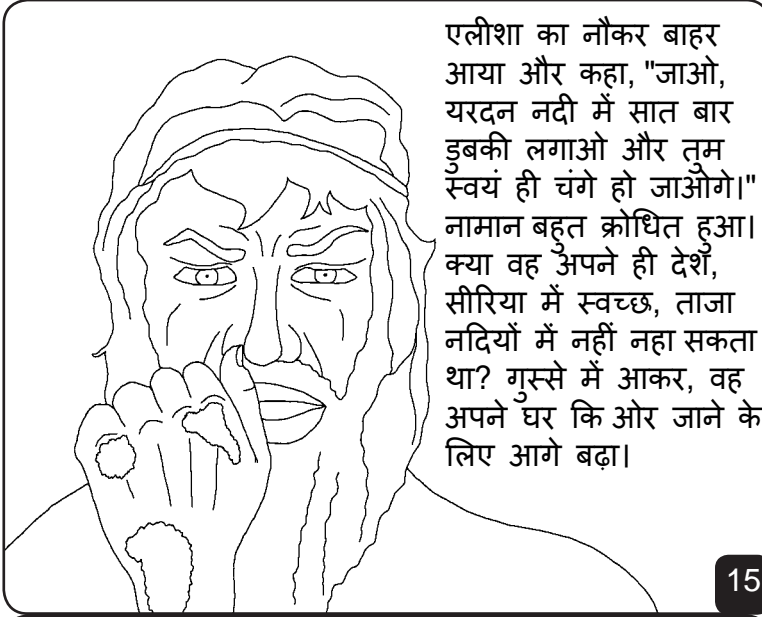 एलीशा का नौकर बाहर
आया और कहा, "जाओ,
यरदन नदी में सात बार
डुबकी लगाओ और तुम
स्वयं ही चंगे हो जाओगे।"
नामान बहुत क्रोधित हुआ।
क्या वह अपने ही देश,
सीरिया में स्वच्छ, ताजा
नदियों में नहीं नहा सकता
था? गुस्से में आकर, वह
अपने घर कि ओर जाने के
लिए आगे बढ़ा।
15